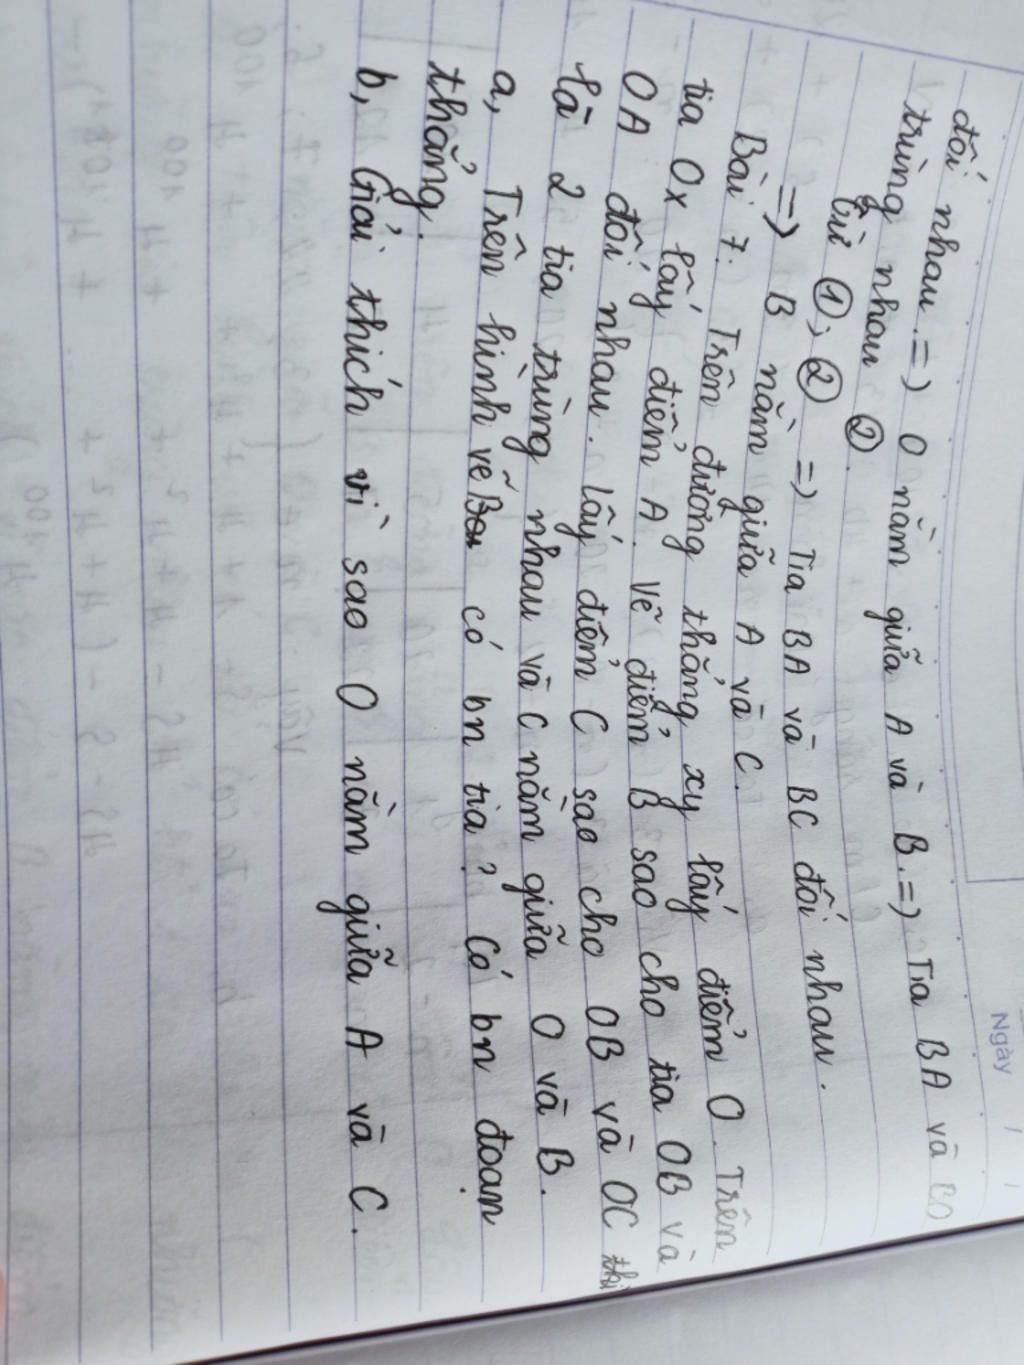 Ngày / /
đối nhau. => O nằm giữa A và B. => Tia BA và BO
trùng nhau ②.
từ ①, ② => Tia BA và BC đối nhau.
=> B nằm giữa A và C.
Bài 7. Trên đường thẳng xy lấy điểm O. Trên
tia Ox lấy điểm A. Vẽ điểm B sao cho tia OB và
OA đối nhau. Lấy điểm C sao cho OB và OC thì
là 2 tia trùng nhau và C nằm giữa O và B.
a, Trên hình vẽ có bn tia? Có bn đoạn
thẳng.
b, Giải thích vì sao O nằm giữa A và C.